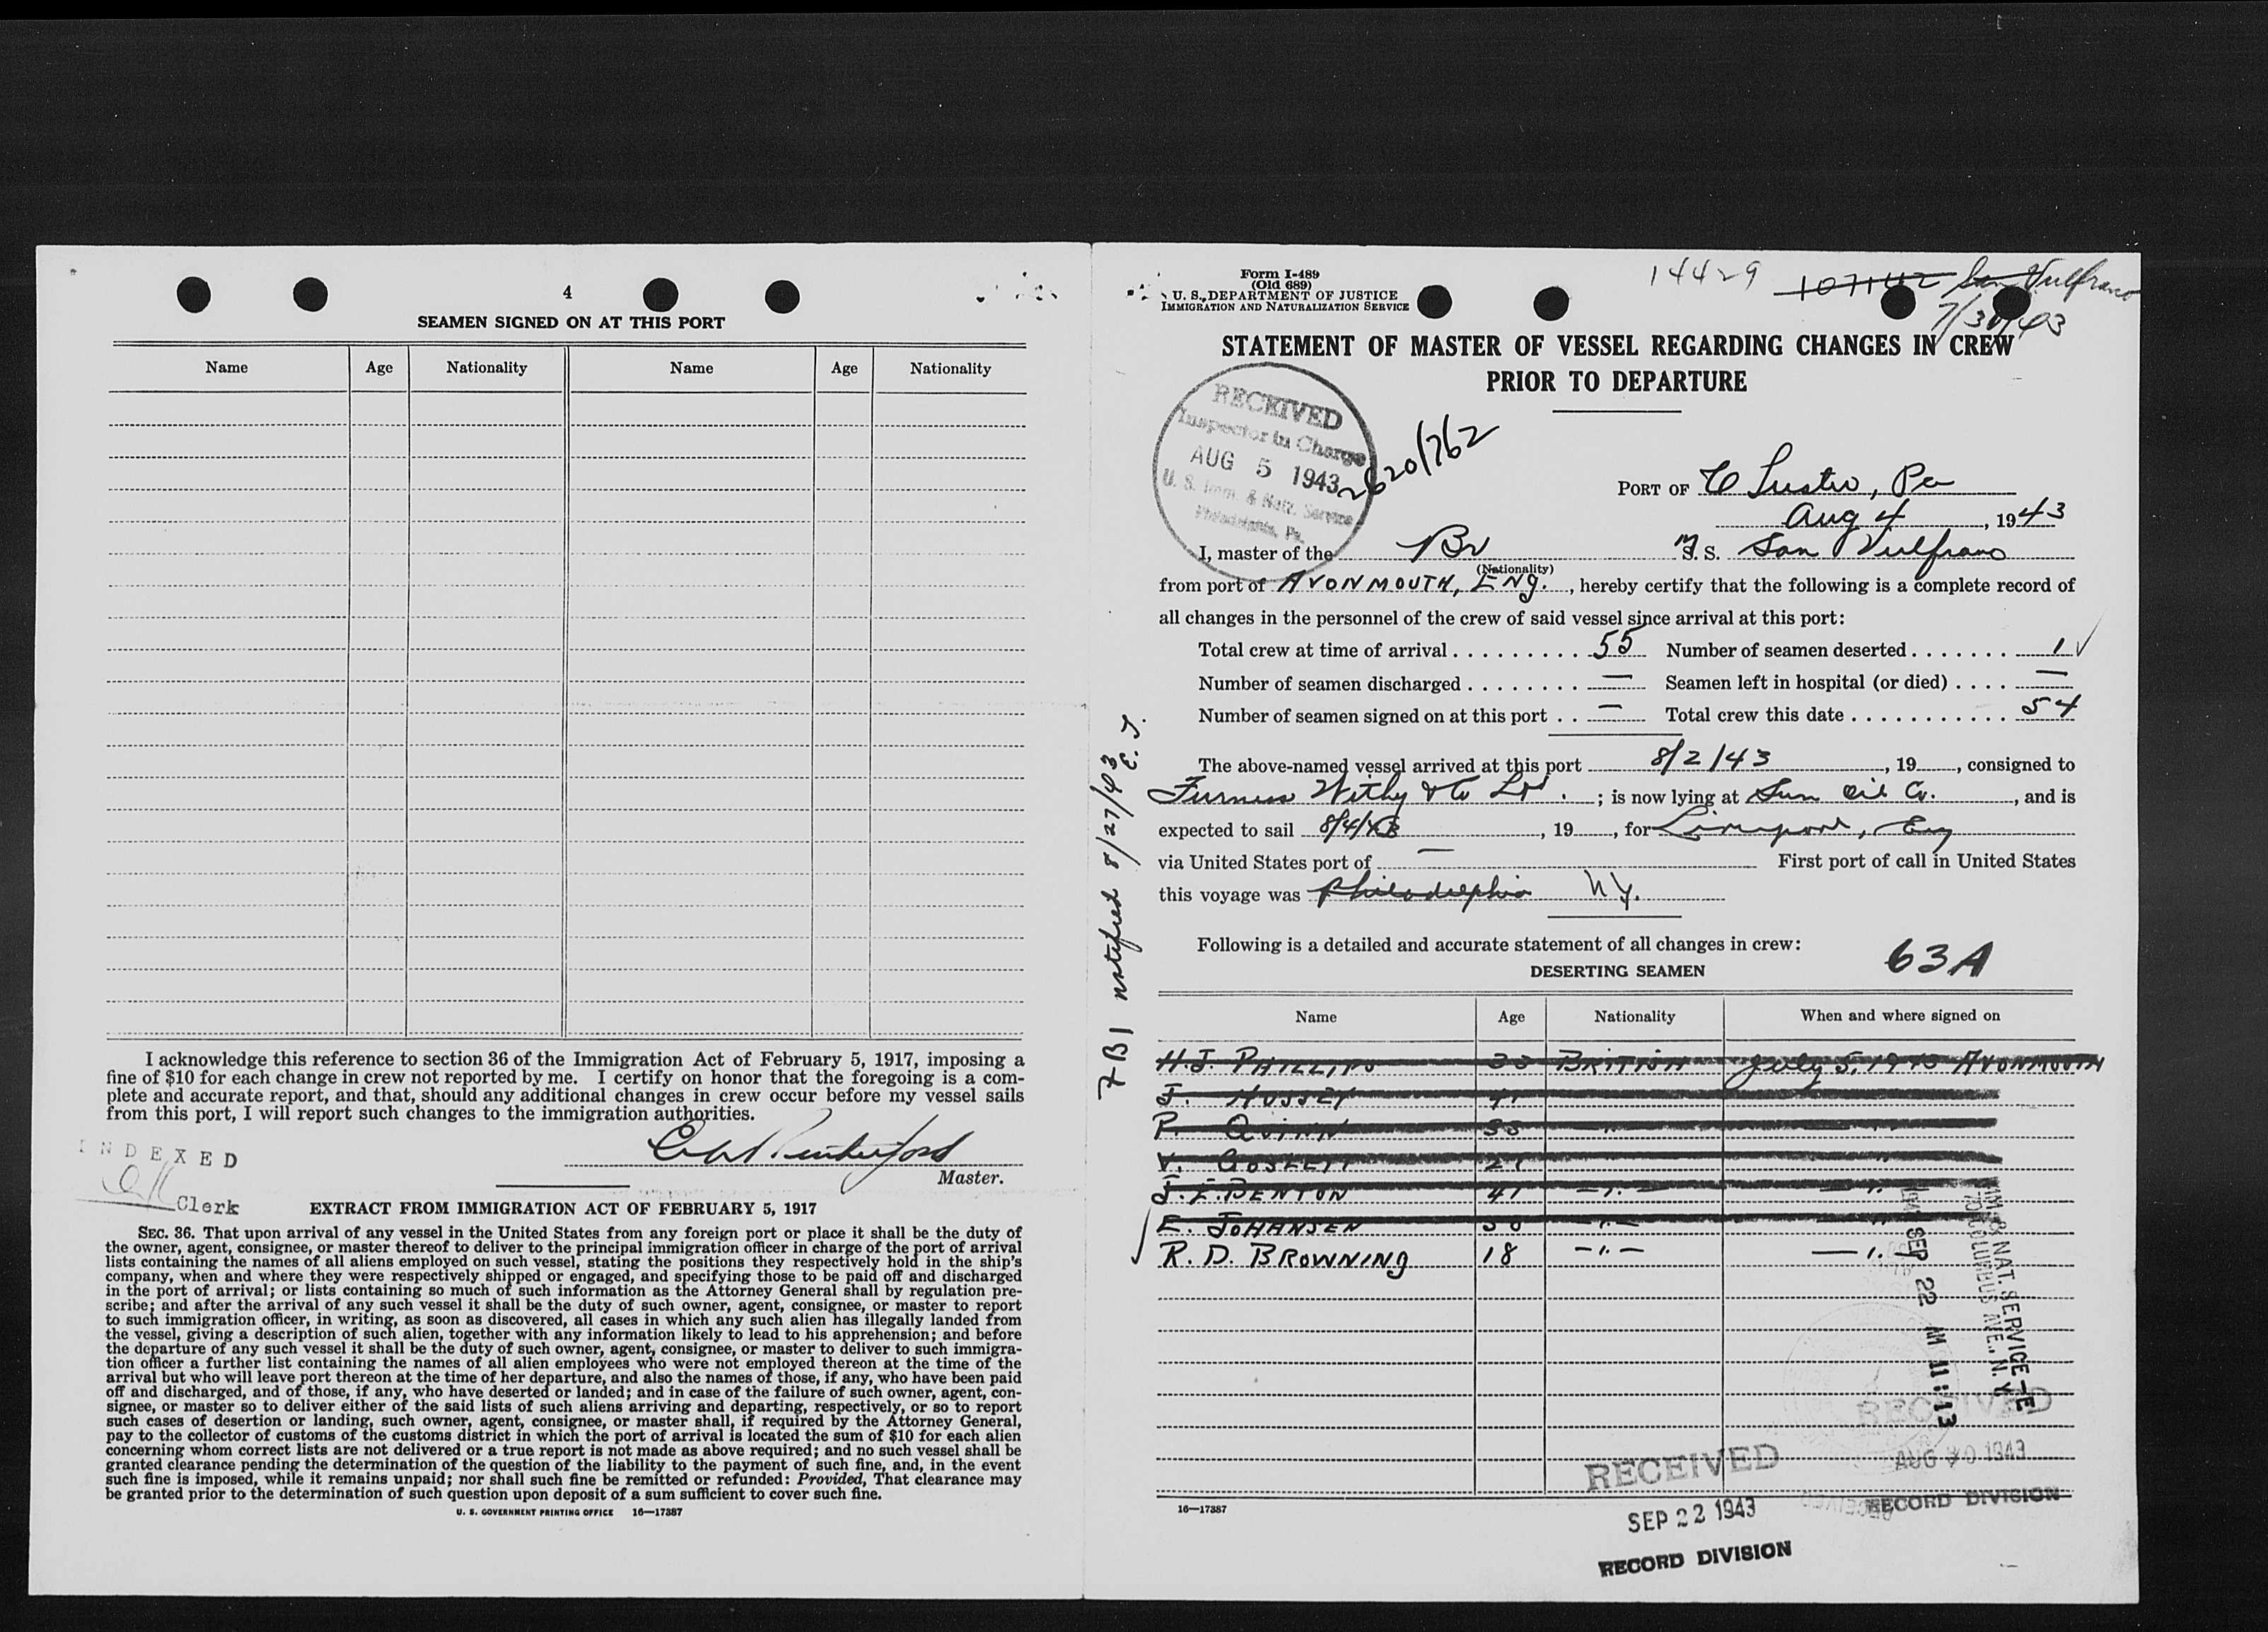 4
SEAMEN SIGNED ON AT THIS PORT
Name Age Nationality Name Age Nationality
I acknowledge this reference to section 36 of the Immigration Act of February 5, 1917, imposing a
fine of $10 for each change in crew not reported by me. I certify on honor that the foregoing is a com-
plete and accurate report, and that, should any additional changes in crew occur before my vessel sails
from this port, I will report such changes to the immigration authorities.
Rutherford
Master.
INDEXED
Clerk
EXTRACT FROM IMMIGRATION ACT OF FEBRUARY 5, 1917
SEC. 36. That upon arrival of any vessel in the United States from any foreign port or place it shall be the duty of
the owner, agent, consignee, or master thereof to deliver to the principal immigration officer in charge of the port of arrival
lists containing the names of all aliens employed on such vessel, stating the positions they respectively hold in the ship's
company, when and where they were respectively shipped or engaged, and specifying those to be paid off and discharged
in the port of arrival; or lists containing so much of such information as the Attorney General shall by regulation pre-
scribe; and after the arrival of any such vessel it shall be the duty of such owner, agent, consignee, or master to report
to such immigration officer, in writing, as soon as discovered, all cases in which any such alien has illegally landed from
the vessel, giving a description of such alien, together with any information likely to lead to his apprehension; and before
the departure of any such vessel it shall be the duty of such owner, agent, consignee, or master to deliver to such immigra-
tion officer a further list containing the names of all alien employees who were not employed thereon at the time of the
arrival but who will leave port thereon at the time of her departure, and also the names of those, if any, who have been paid
off and discharged, and of those, if any, who have deserted or landed; and in case of the failure of such owner, agent, con-
signee, or master so to deliver either of the said lists of such aliens arriving and departing, respectively, or so to report
such cases of desertion or landing, such owner, agent, consignee, or master shall, if required by the Attorney General,
pay to the collector of customs of the customs district in which the port of arrival is located the sum of $10 for each alien
concerning whom correct lists are not delivered or a true report is not made as above required; and no such vessel shall be
granted clearance pending the determination of the question of the liability to the payment of such fine, and, in the event
such fine is imposed, while it remains unpaid; nor shall such fine be remitted or refunded: Provided, That clearance may
be granted prior to the determination of such question upon deposit of a sum sufficient to cover such fine.
U. S. GOVERNMENT PRINTING OFFICE 16—17387
Form I-489
(Old 689)
U. S. DEPARTMENT OF JUSTICE
IMMIGRATION AND NATURALIZATION SERVICE
14429 107142 San Vulfrano
7/30/43
STATEMENT OF MASTER OF VESSEL REGARDING CHANGES IN CREW
PRIOR TO DEPARTURE
RECEIVED
Inspector in Charge
AUG 5 1943
U. S. Imm. & Natz. Service
Philadelphia, Pa.
2620/762
PORT OF Pa
Aug 4, 1943
I, master of the Br M. S. San Vulfrano
(Nationality)
from port of AVONMOUTH, ENG., hereby certify that the following is a complete record of
all changes in the personnel of the crew of said vessel since arrival at this port:
Total crew at time of arrival 55 Number of seamen deserted 1 ✓
Number of seamen discharged — Seamen left in hospital (or died) —
Number of seamen signed on at this port — Total crew this date 54
The above-named vessel arrived at this port 8/2/43, 19, consigned to
Furness Withy & Co Ltd.; is now lying at Sun Oil Co., and is
expected to sail 8/4/43, 19, for Liverpool, Eng
via United States port of — First port of call in United States
this voyage was Philadelphia N.Y.
FBI notified 8/27/43
E. J.
Following is a detailed and accurate statement of all changes in crew:
63A
DESERTING SEAMEN
Name Age Nationality When and where signed on
H.J. PHILLIPS 33 BRITISH July 5, 1943 AVONMOUTH
J. HUSSEY 41
P. QUINN 55 "
V. GOSLETT 21 "
J. F. BENTON 41 — " — — "
E. JOHANSEN 50 — " — "
R. D. BROWNING 18 — " — — "
IMM. & NAT. SERVICE
70 COLUMBUS AVE., N. Y.
SEP 22 AM 11:13
RECEIVED
AUG 30 1943
RECORD DIVISION
RECEIVED
SEP 22 1943
RECORD DIVISION
16—17387